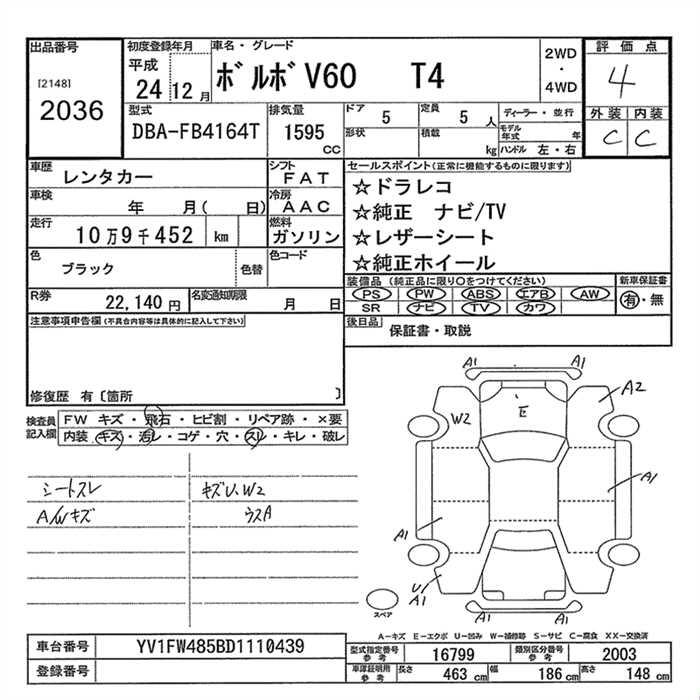 出品番号
[2148]
2036
初度登録年月
平成
24 12月
車名・グレード
ボルボV60 T4
2WD
・
4WD
評価点
4
外装 内装
C C
型式
DBA-FB4164T
排気量
1595
CC
ドア 5
定員 5 人
ディーラー・並行
形状
積載 kg
モデル年式 年
ハンドル 左・右
車歴 レンタカー
シフト
FAT
車検 年 月( 日)
冷房
AAC
走行 10万9千452 km
燃料
ガソリン
色 ブラック 色替
色コード
R券 22,140円
名変通知期限 月 日
セールスポイント(正常に機能するものに限ります)
☆ドラレコ
☆純正 ナビ/TV
☆レザーシート
☆純正ホイール
装備品 (純正品に限り○をつけてください)
PS PW ABS エアB AW
SR ナビ TV カワ
新車保証書
有・無
後日品 保証書・取説
注意事項申告欄(不具合内容等は具体的に記入して下さい)
修復歴 有〔箇所 〕
検査員記入欄
FW キズ・飛石・ヒビ割・リペア跡・×要
内装・キズ・汚レ・コゲ・穴・スレ・キレ・破レ
シートスレ
キズU、W2
A/Wキズ
ウスA
A1 A1
A2
W2
E
A1
A1
U
A1
A1 A1
スペア
A－キズ E－エクボ U－凹み W－補修跡 S－サビ C－腐食 XX－交換済
車台番号 YV1FW485BD1110439
登録番号
型式指定番号 参考 16799
類別区分番号 参考 2003
車庫証明用 参考 長さ 463 cm 幅 186 cm 高さ 148 cm